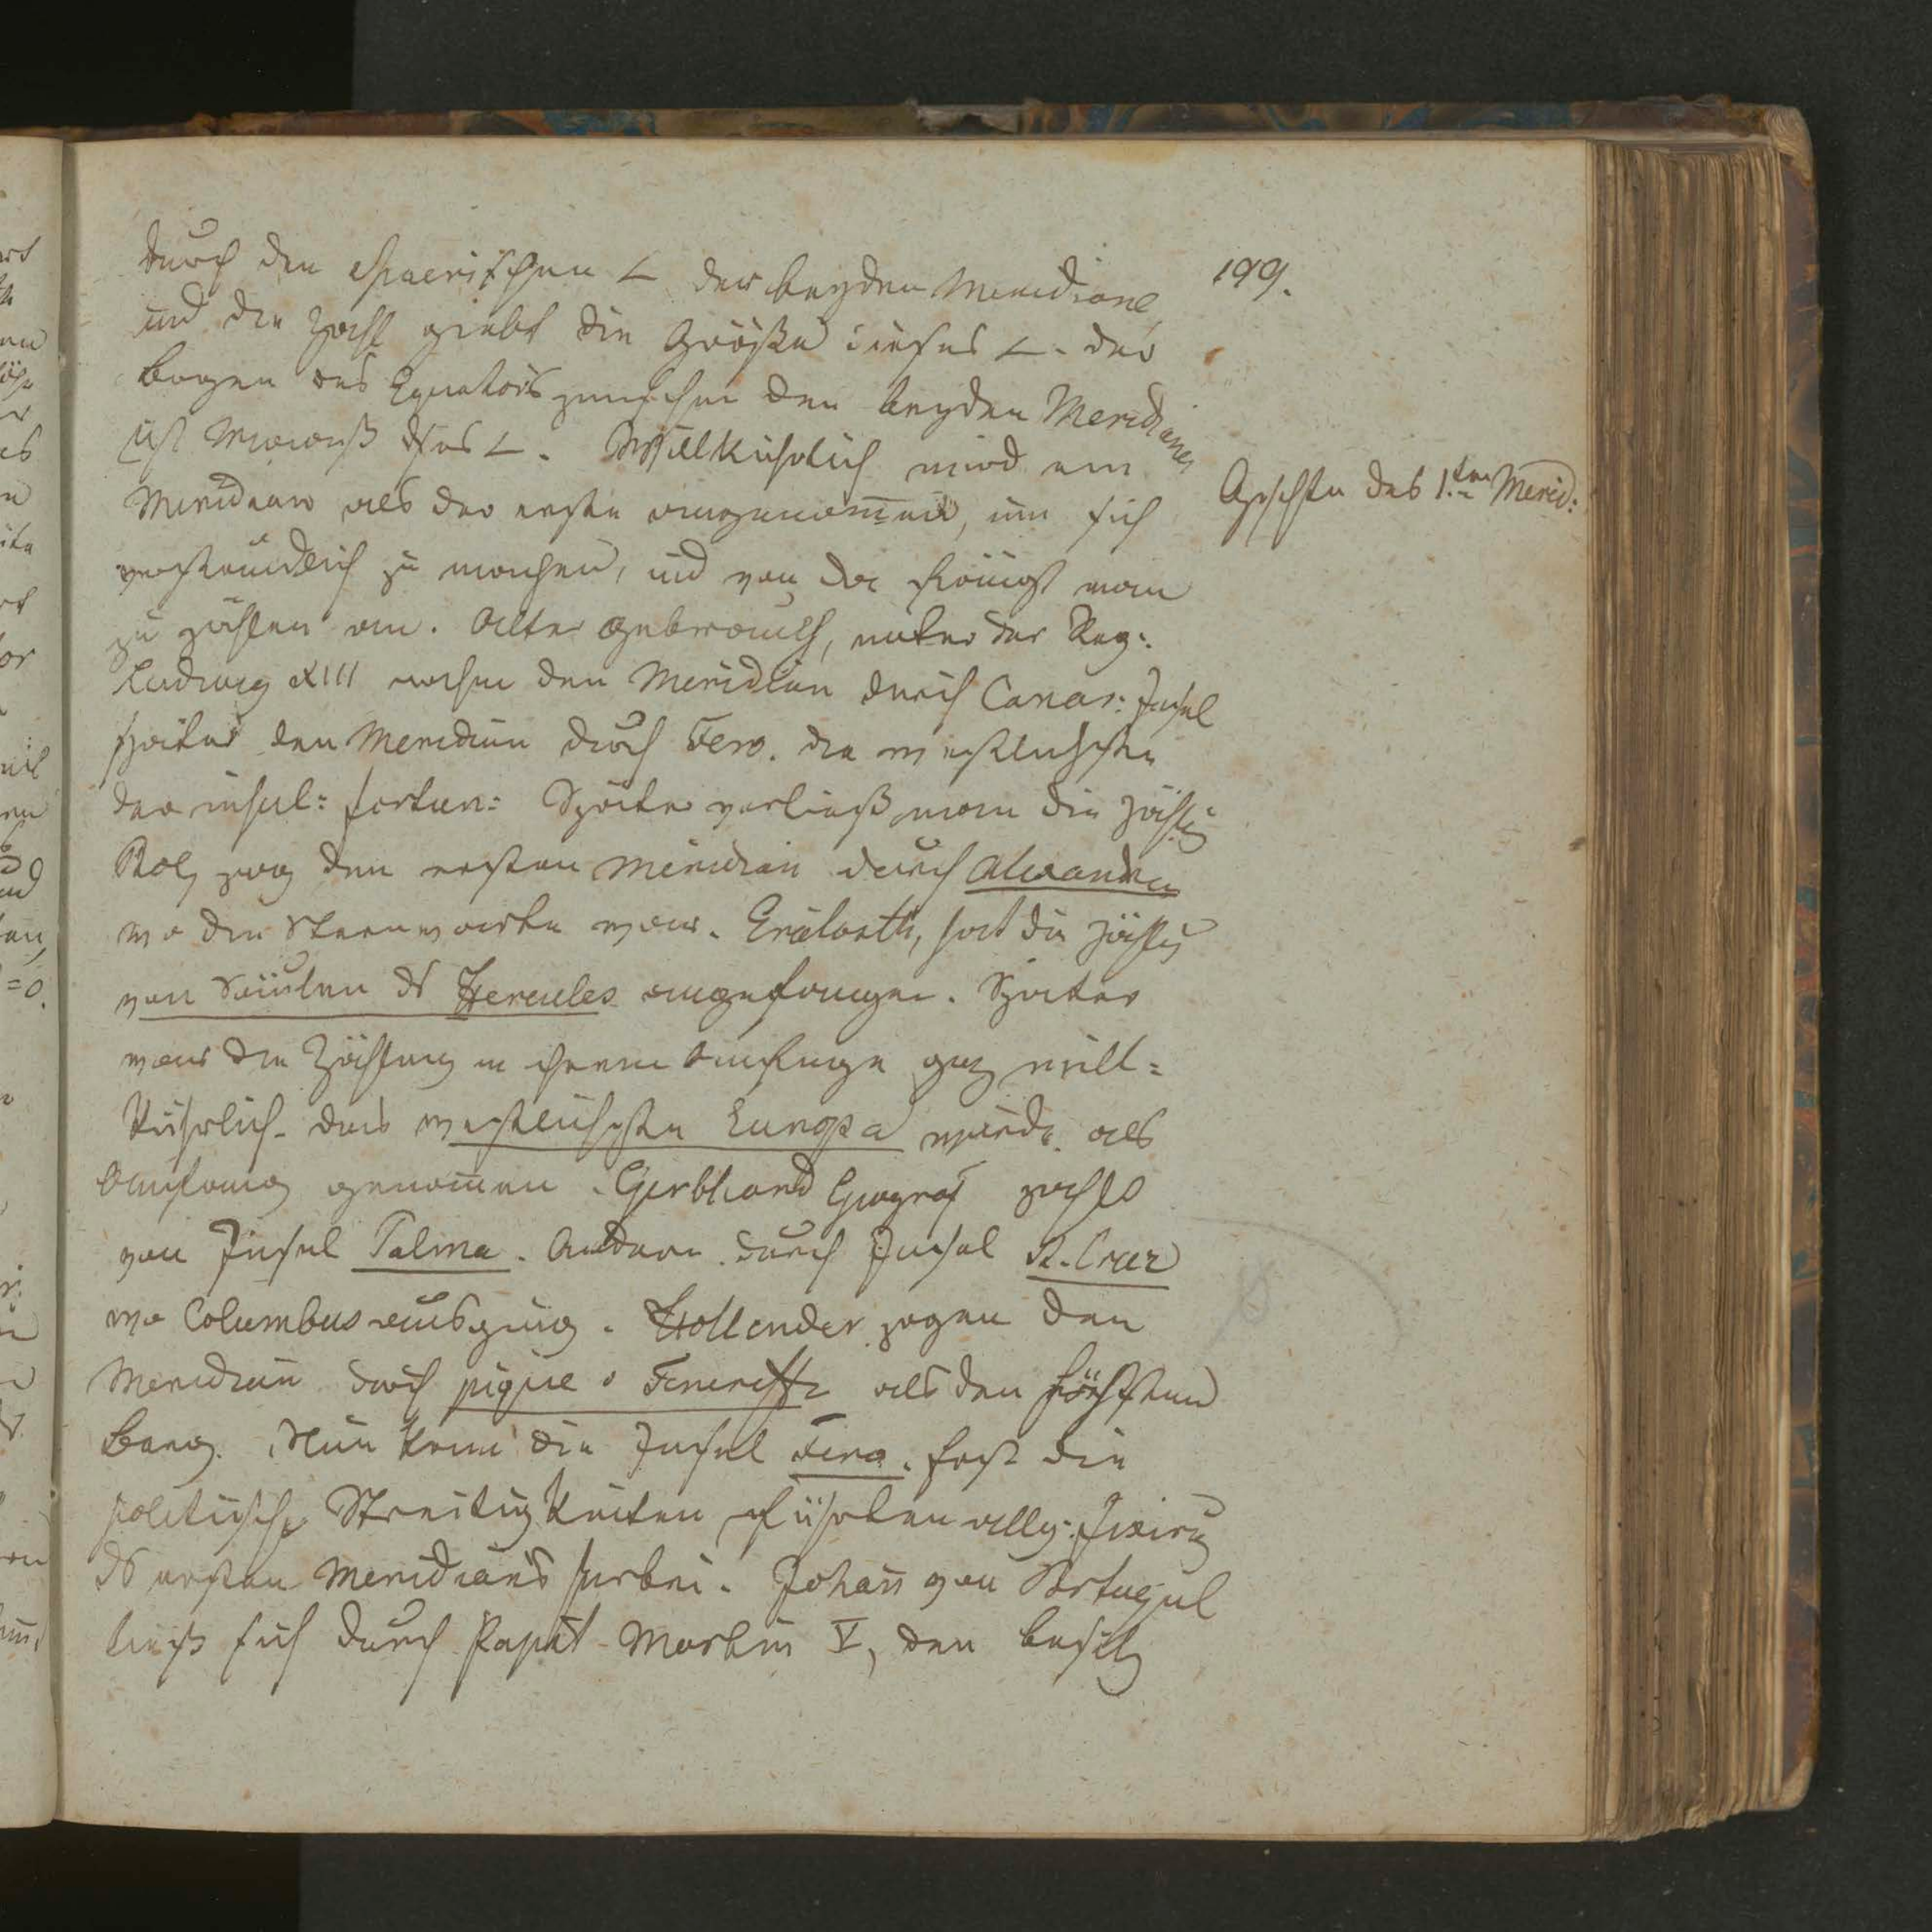 199.
durch den spaerischen ∠ der beyden Meridiane,
und die Zahl giebt die Größe dieses ∠. der
Bogen des Equators zwischen den beyden Meridianen
ist Maaß dses ∠. Willkührlich wird ein
Meridian als der erste angenom̄en, um sich
Gschchte des 1.ten Merid:
verständlich zu machen, und von da fängt man
zu zählen an. Alter Gebrauch, unter der Reg:
Ludwig XIII nahm den Meridian durch Canar: Insel
später den Meridian durch Fero. die westlichste
der insul: fortun: Später verließ man die Zählg
Ptol, zog den ersten Meridian durch Alexandria
wo die Sternwarte war. Eratosth, hat die Zählg
von Säulen ds Hercules angefangen. Später
war die Zählung in ihrem Anfange gnz will=
kührlich. das westlichste Europa wurde als
Anfang genom̄en. Geograf zählt
von Insel Palma. Andere durch Insel St. Cruz
wo Columbus ausging. Hollender zogen den
Meridian durch pique o Teneriffe als den höchsten
Berg. Nun kam die Insel Fero. fast die
politische Streitigkeiten führten allg: Fixirg
ds ersten Meridians herbei. Johan̄ von Portugal
ließ sich durch Papst Martin V, den Besitz